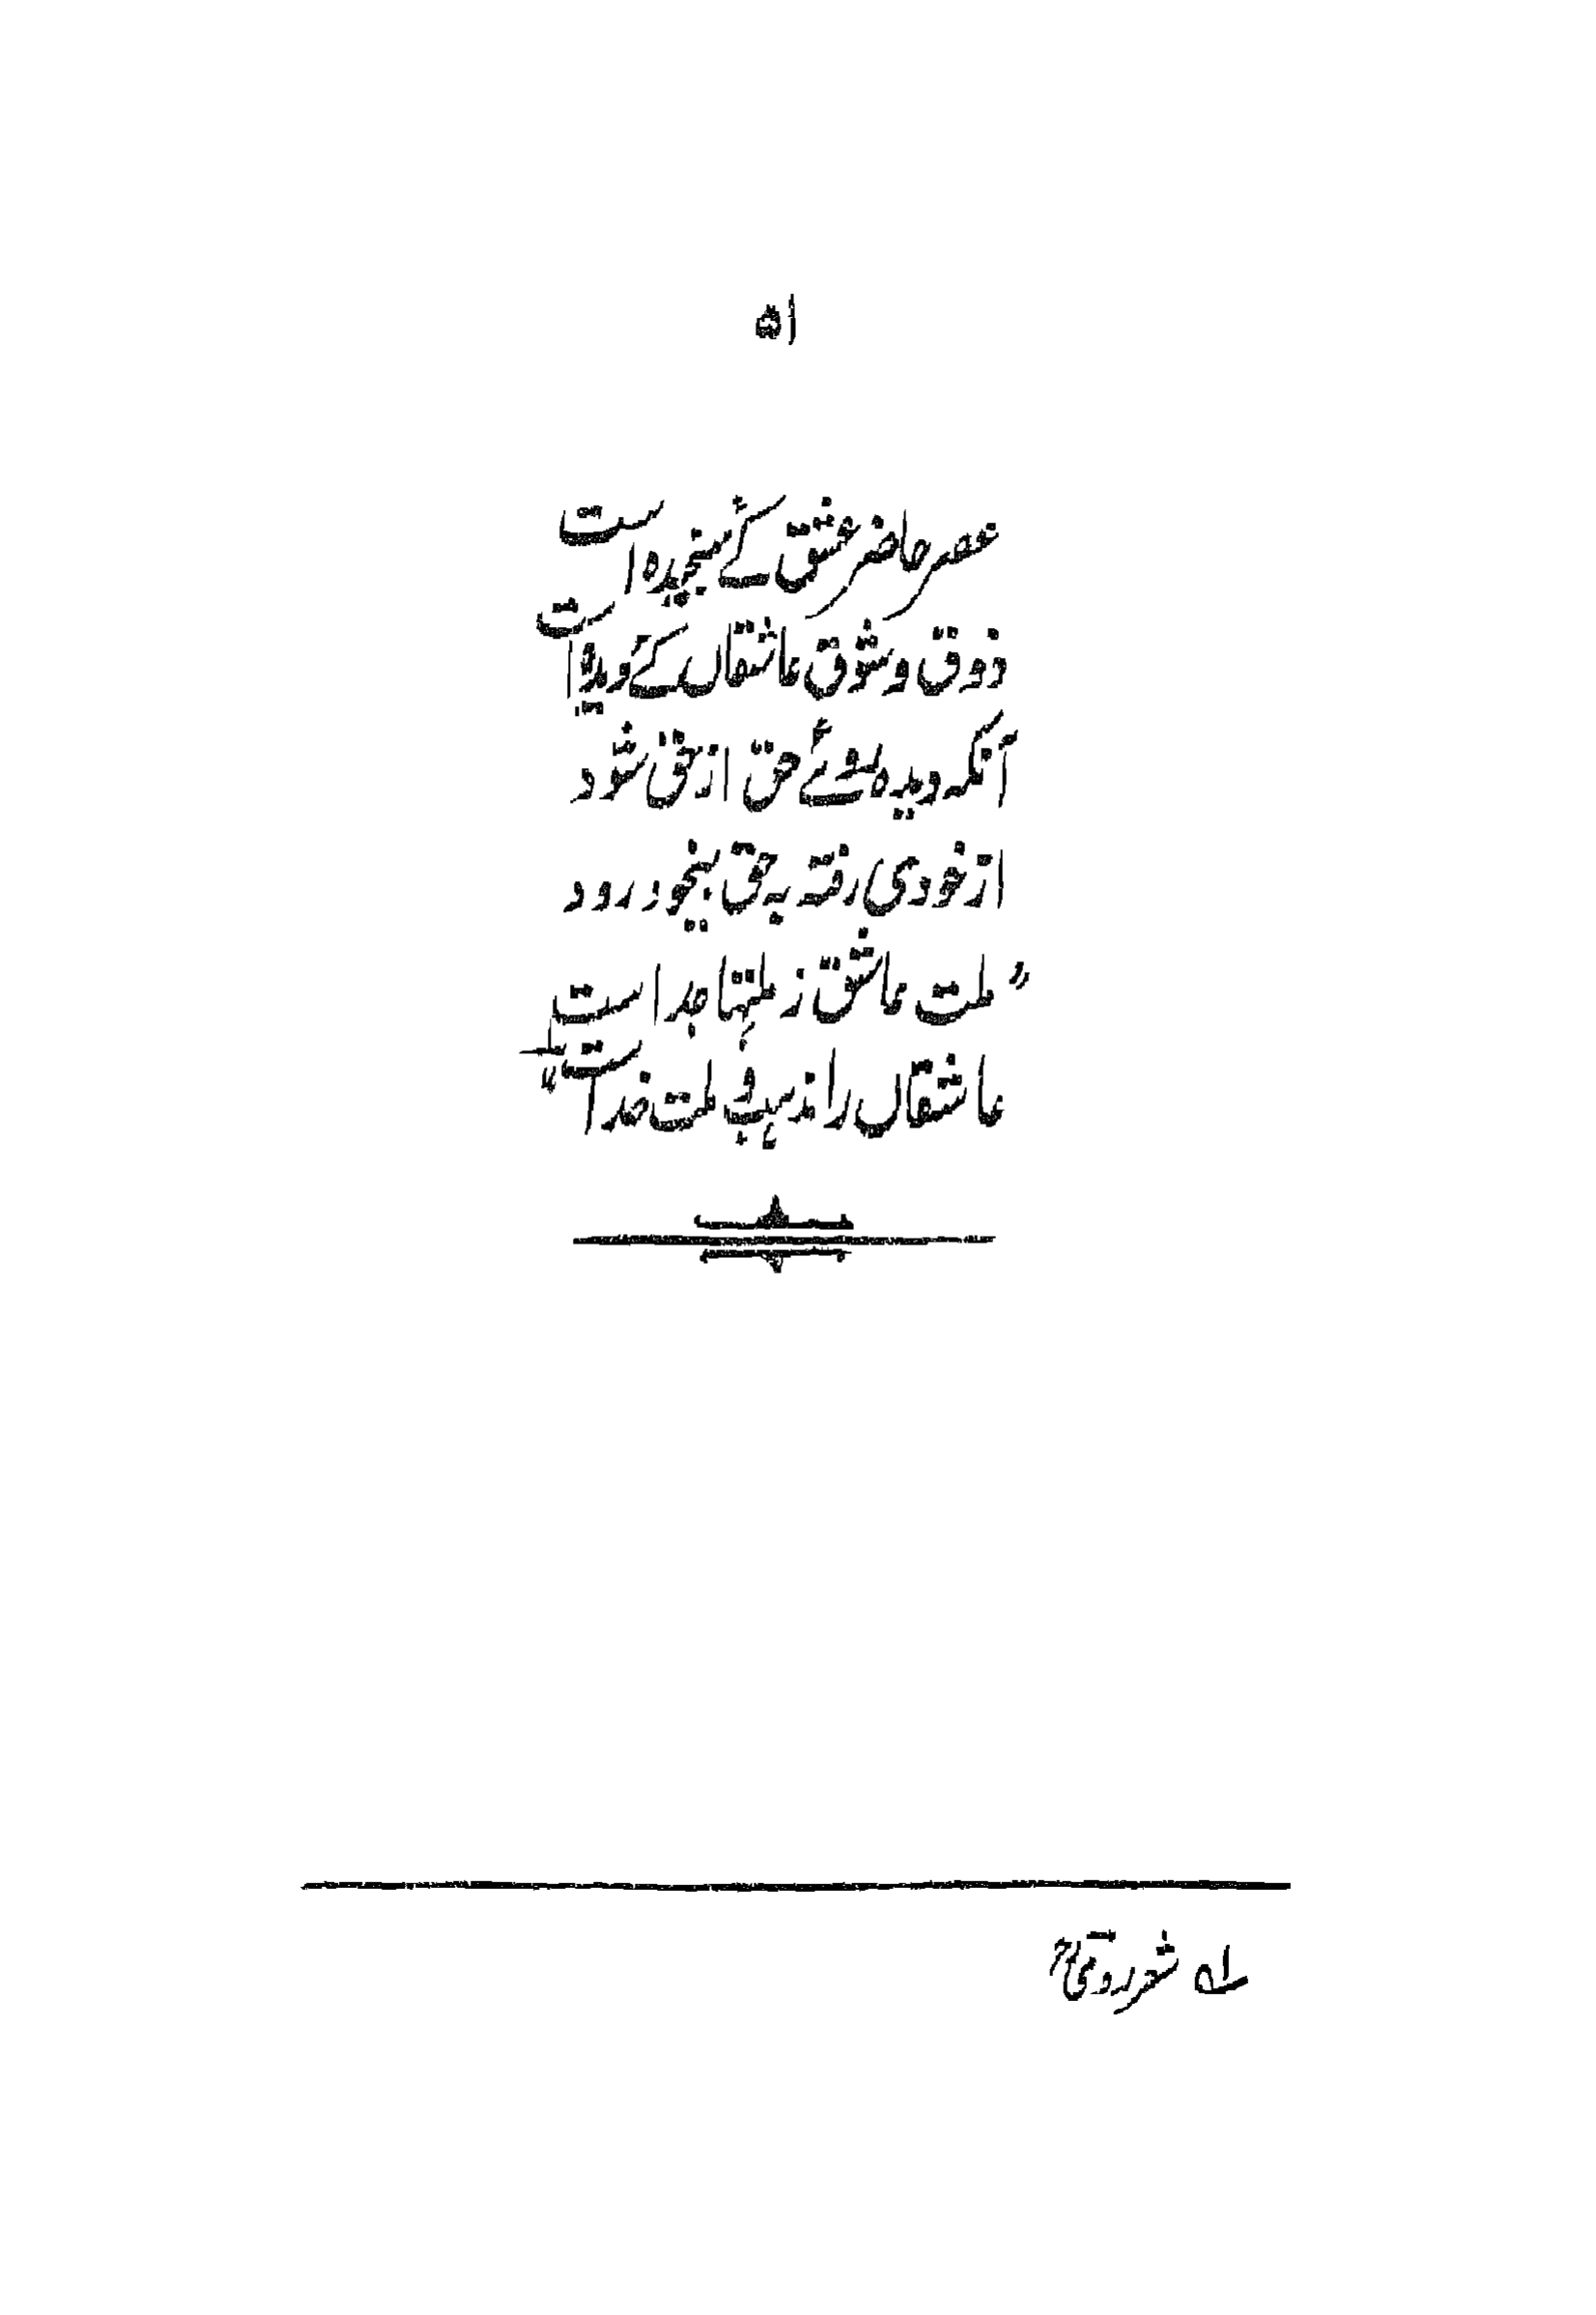 ۵۱
عصر حاضر عشق کئے سنجیدہ است
ذوق و شوق عاشقاں کئے دیدہ است
آنکہ دیدہ روئے حق از حق شود
از خودی رفتہ بہ حق بیخود رود
”ملت عاشق ز ملتہا جدا است
عاشقاں را مذہب و ملت خدا است“ لہ
لہ شعر رومیؒ